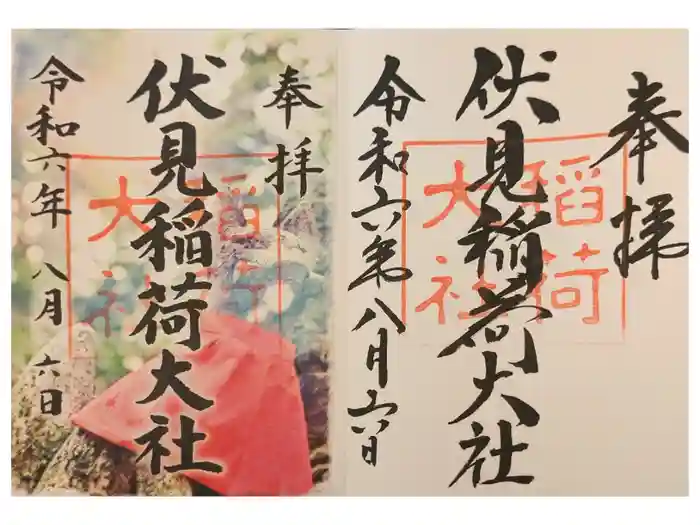 奉拝
伏見稲荷大社
稲荷
大社
令和六年八月六日
奉拝
伏見稲荷大社
稲荷
大社
令和六年八月六日